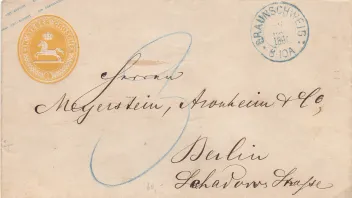 BRAUNSCHWEIG
8-10A
Herren
Meyerstein, Aronheim & Co,
3
Berlin
Schadows Straße